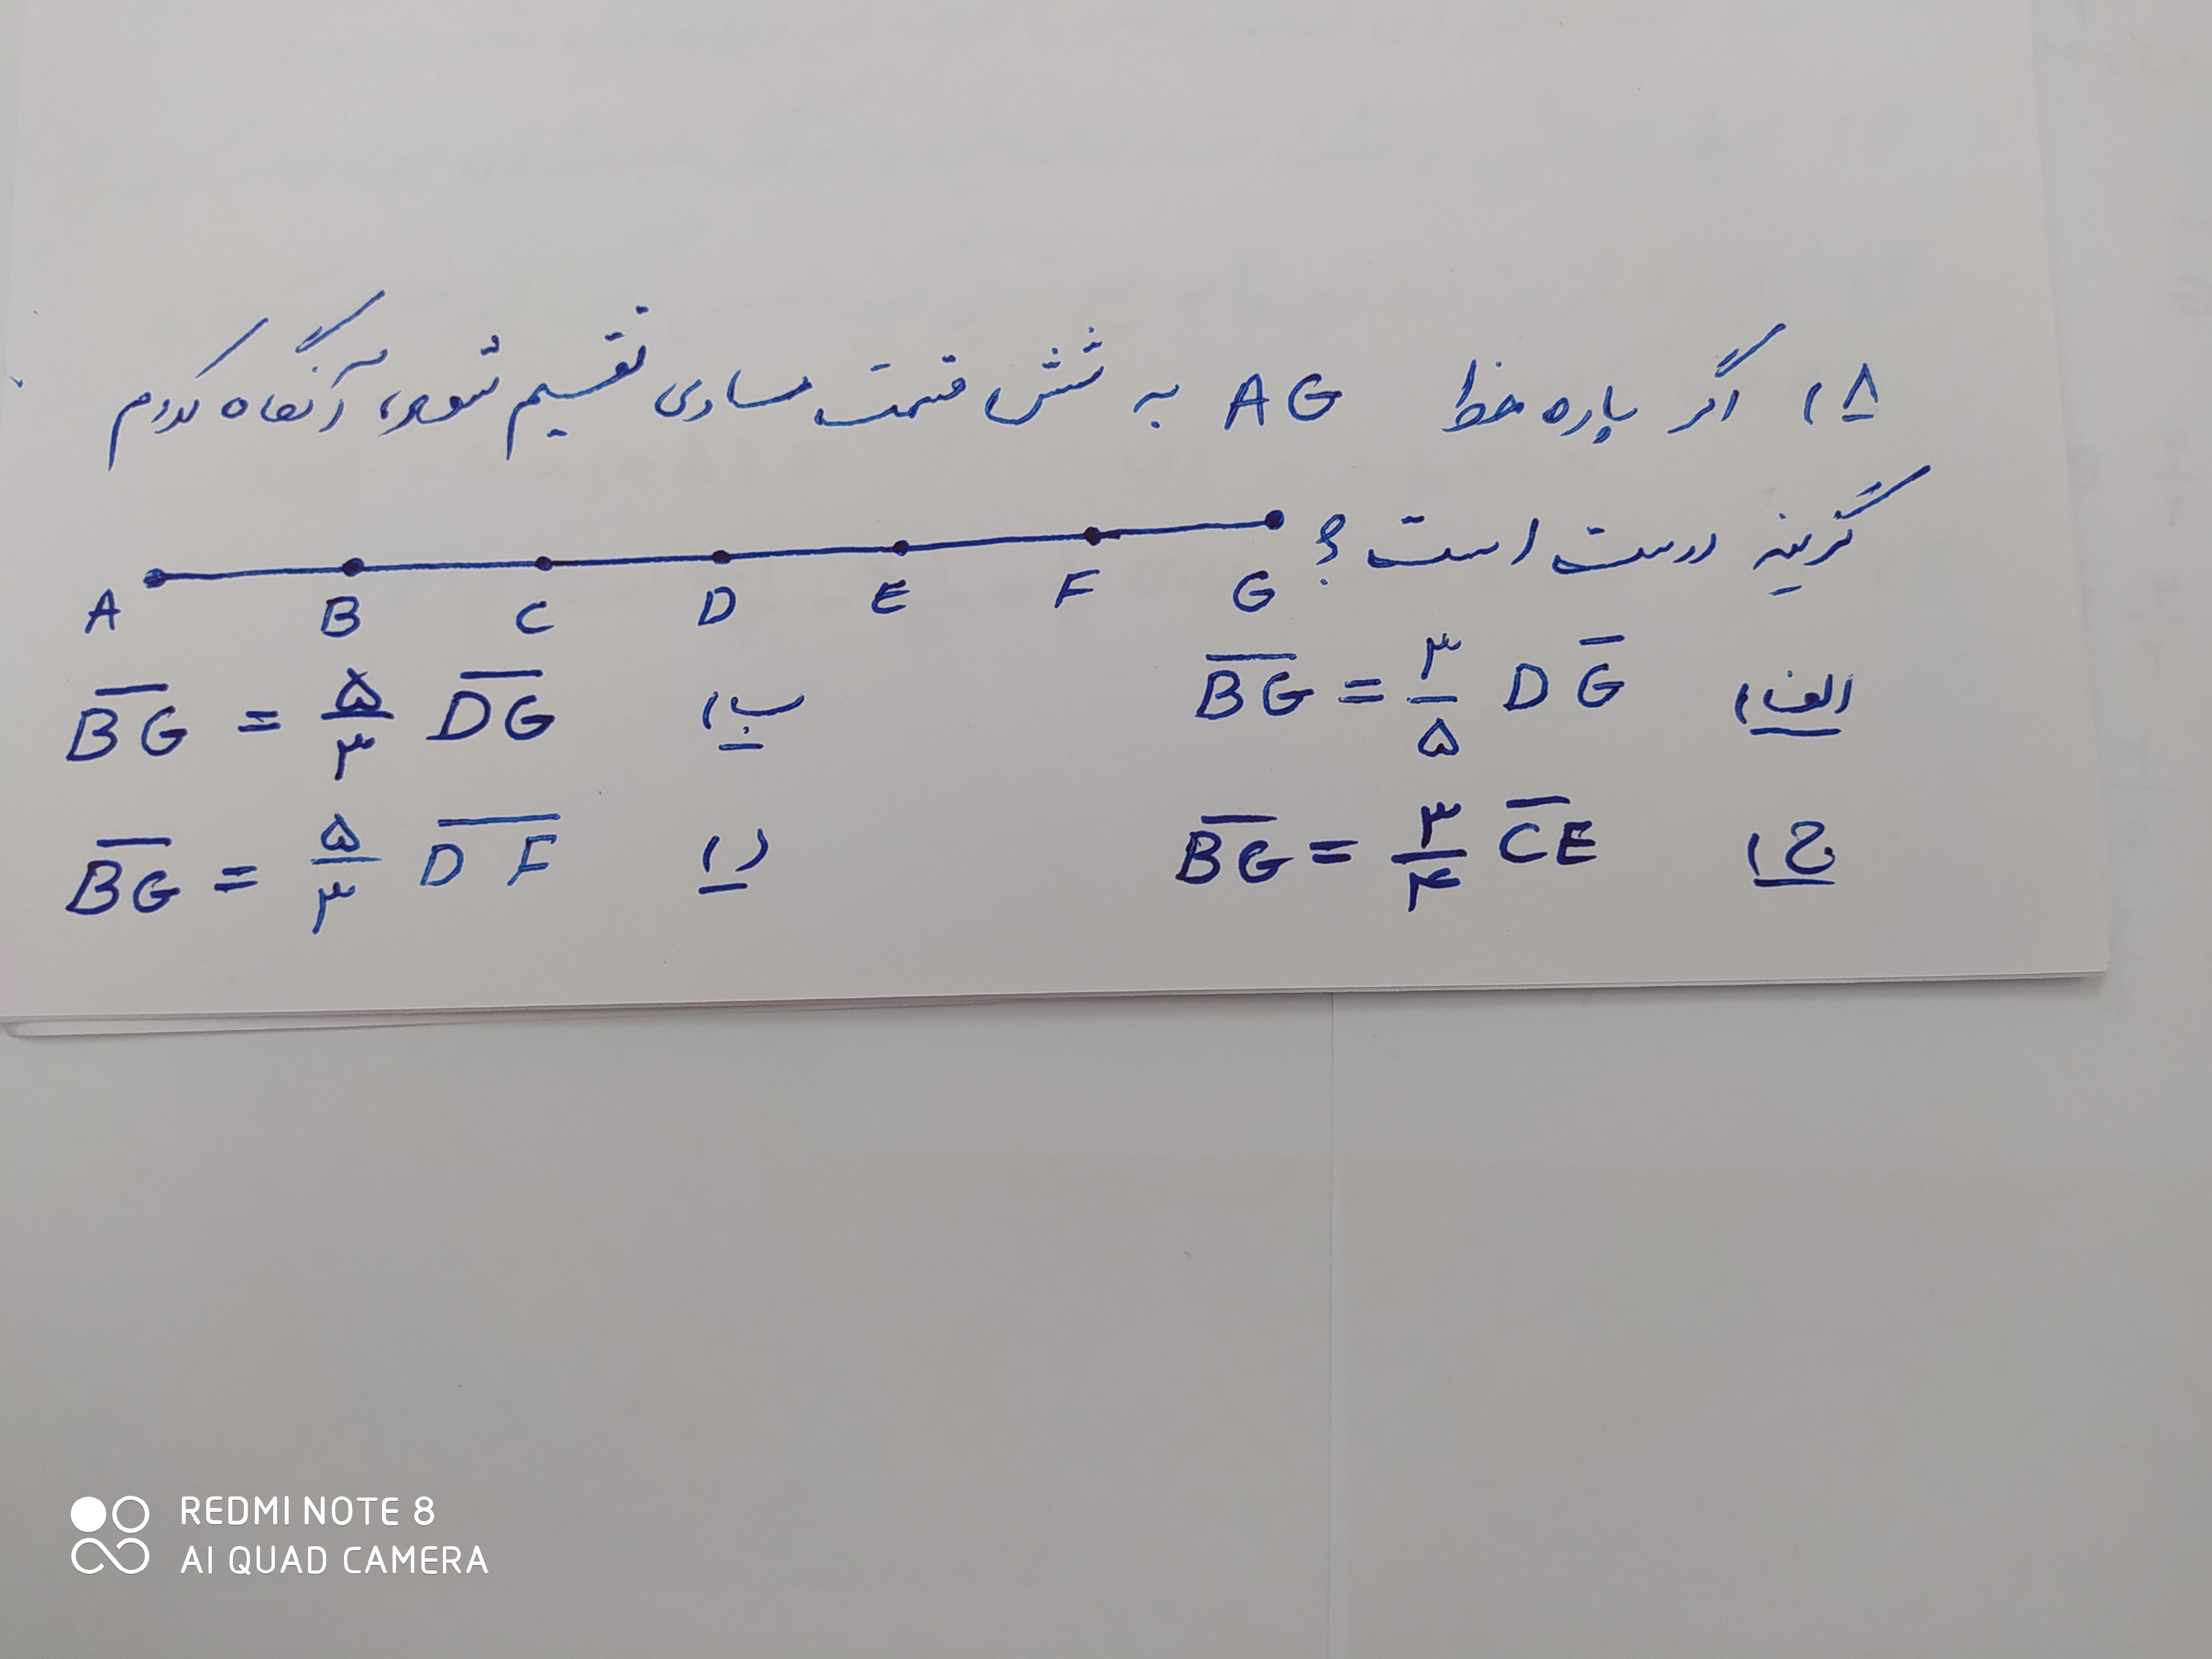 ۸) اگر پاره خط AG به شش قسمت مساوی تقسیم شود، آنگاه کدام
گزینه درست است؟
A B C D E F G
الف) BG = ۳/۵ DG ب) BG = ۵/۳ DG
ج) BG = ۳/۴ CE د) BG = ۵/۳ DF
REDMI NOTE 8
AI QUAD CAMERA